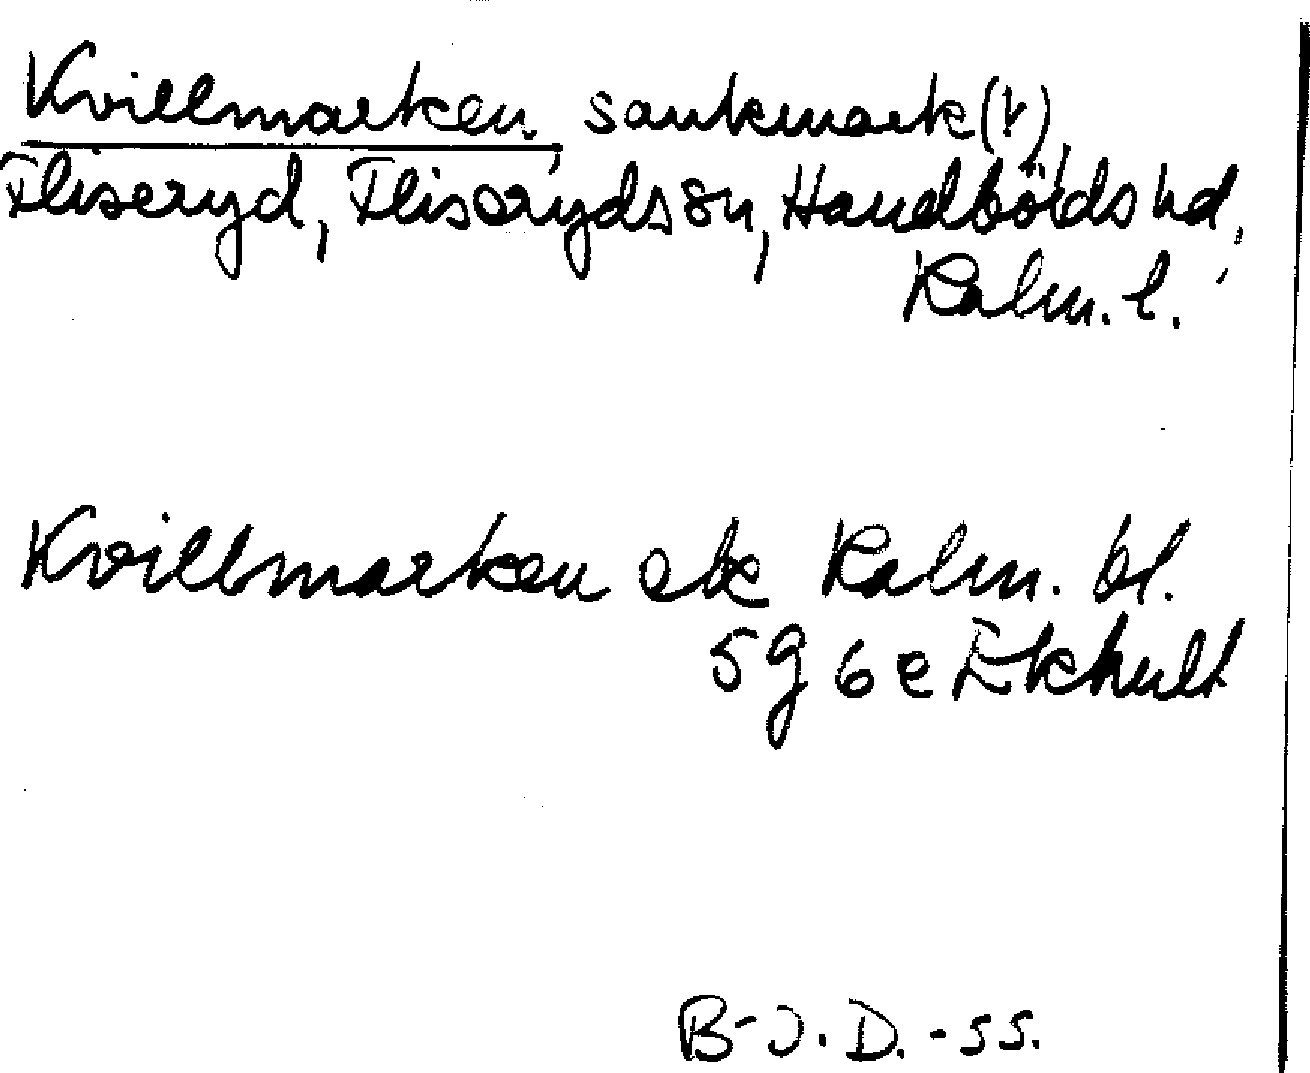 Kvillmarken, sankmark(?),
Fliseryd, Fliseryds sn, Handbörds hd,
Kalm. l.
Kvillmarken ek Kalm. bl.
5g 6e Ekhult
B-J. D. -55.